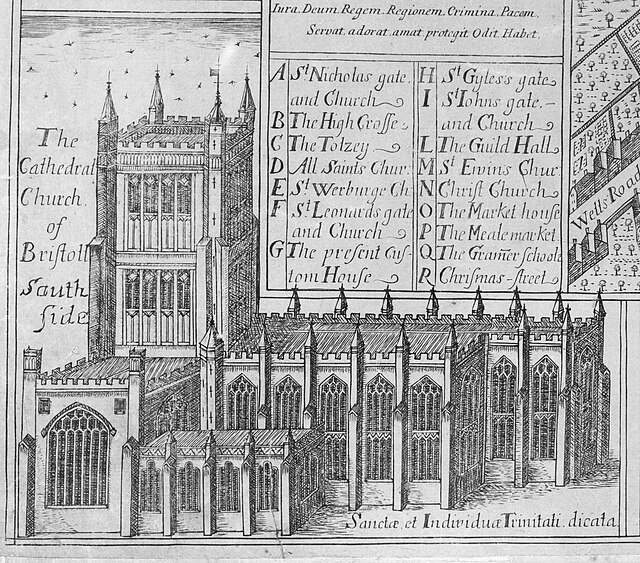 Iura, Deum, Regem, Regionem, Crimina, Pacem,
Servat, adorat, amat, protegit, Odit, Habet.
The
Cathedral
Church
of
Bristoll
South
side
A St Nicholas gate
and Church
B The High Crosse
C The Tolzey
D All Saints Chur:
E St Werburge Ch
F St Leonards gate
and Church
G The present Cus-
tom House
H St Gyles's gate
I St Iohns gate,
and Church
L The Guild Hall
M St Ewins Chur
N Christ Church
O The Market house
P The Meale market
Q The Gramer schoole
R Chrismas-street
Wells Road
Sanctæ, et Individuæ Trinitati, dicata